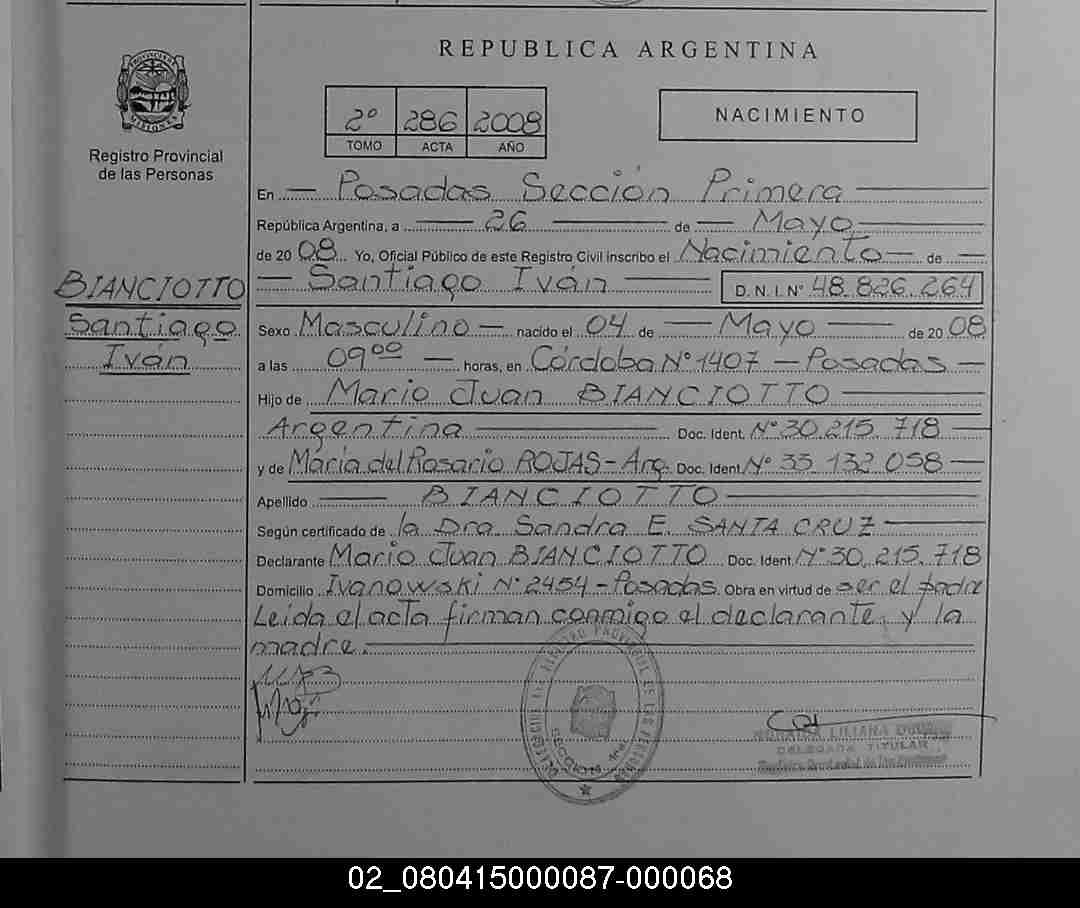 REPUBLICA ARGENTINA
PROVINCIA DE
MISIONES
Registro Provincial
de las Personas
2º 286 2008
TOMO ACTA AÑO
NACIMIENTO
En — Posadas Sección Primera —
República Argentina, a — 26 — de — Mayo —
de 2008. Yo, Oficial Público de este Registro Civil inscribo el Nacimiento — de —
— Santiago Iván — D.N.I. Nº 48.826.264
BIANCIOTTO
Santiago
Iván
Sexo Masculino — nacido el 04 de — Mayo — de 2008
a las 09⁰⁰ — horas, en Córdoba Nº 1407 — Posadas —
Hijo de Mario Juan BIANCIOTTO —
Argentina — Doc. Ident. Nº 30.215.718 —
y de María del Rosario ROJAS - Arg. Doc. Ident. Nº 33.132.058 —
Apellido — BIANCIOTTO —
Según certificado de la Dra. Sandra E. SANTA CRUZ —
Declarante Mario Juan BIANCIOTTO Doc. Ident. Nº 30.215.718
Domicilio Ivanowski Nº 2454 - Posadas. Obra en virtud de ser el padre
Leida el acta firman conmigo el declarante y la
madre.
LILIANA
DELEGADA TITULAR
Registro Provincial de las Personas
02_080415000087-000068